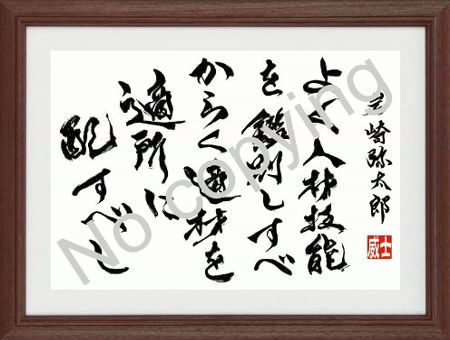 岩崎弥太郎
よく人材技能
を鑑別しすべ
からく適材を
適所に
配すべし
威士
No copying